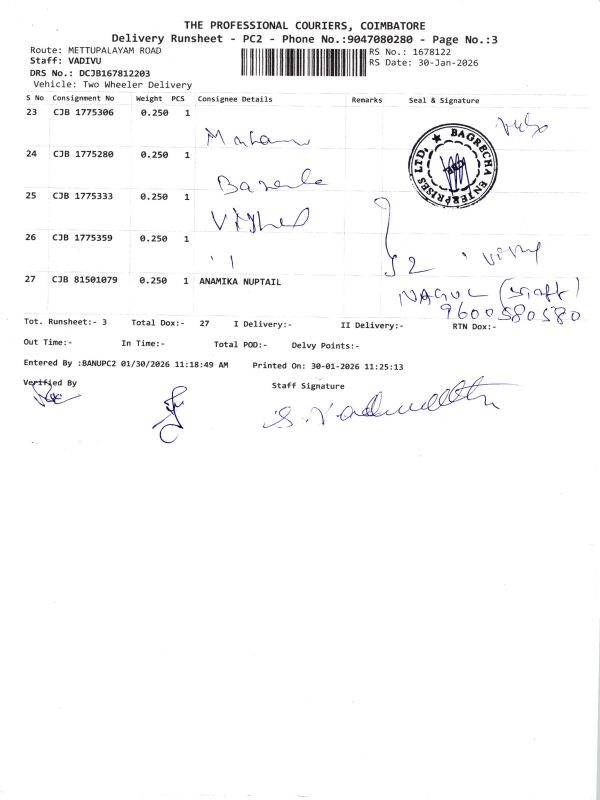 THE PROFESSIONAL COURIERS, COIMBATORE
Delivery Runsheet - PC2 - Phone No.:9047080280 - Page No.:3
Route: METTUPALAYAM ROAD
RS No.: 1678122
Staff: VADIVU
RS Date: 30-Jan-2026
DRS No.: DCJB167812203
Vehicle: Two Wheeler Delivery
S No Consignment No Weight PCS Consignee Details Remarks Seal & Signature
23 CJB 1775306 0.250 1
24 CJB 1775280 0.250 1
BAGRECHA ENTERPRISES LTD.
25 CJB 1775333 0.250 1
26 CJB 1775359 0.250 1
27 CJB 81501079 0.250 1 ANAMIKA NUPTAIL
NAGUL (staff)
9600580580
Tot. Runsheet:- 3 Total Dox:- 27 I Delivery:- II Delivery:- RTN Dox:-
Out Time:- In Time:- Total POD:- Delvy Points:-
Entered By :BANUPC2 01/30/2026 11:18:49 AM Printed On: 30-01-2026 11:25:13
Verified By Staff Signature